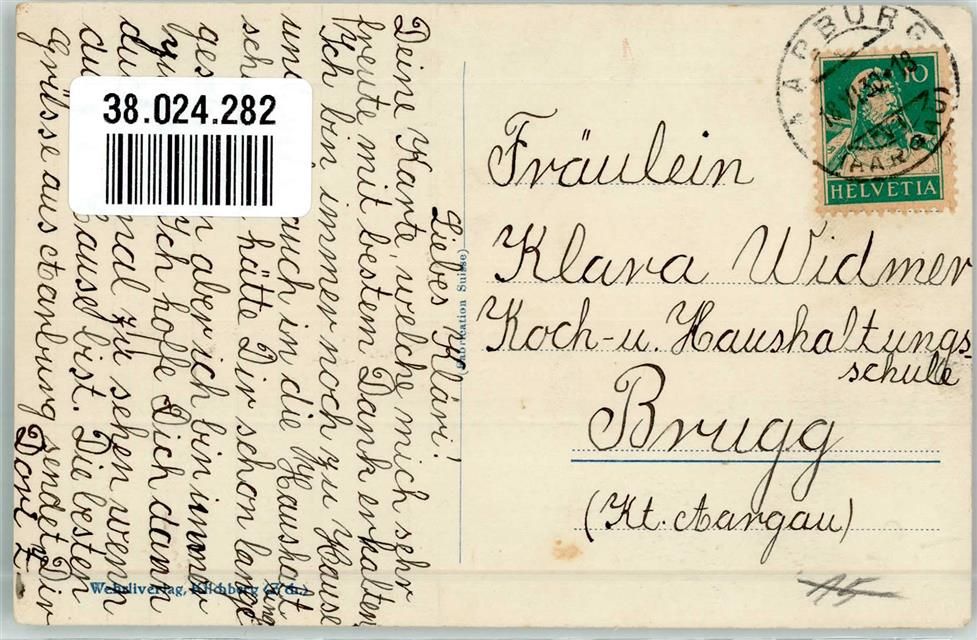 Liebes Klävi!
Deine Karte, welche mich sehr
freute mit bestem Dank erhalten
Ich bin immer noch zu Hause
und auch in die Haushalt
sch hätte Dir schon lange
ges n aber ich bin immer
zu Ich hoffe Dich dann
du mal zu sehen wenn
du Hause bist. Die besten
Grüsse aus Aarburg sendet Dir
Dori Z.
Fräulein
Klara Widmer
Koch- u. Haushaltungs-
schule
Brugg
(Kt. Aargau)
AARBURG
(AARGAU)
10
HELVETIA
38.024.282
(Fabrication Suisse)
Wehrliverlag, Kilchberg (Zch.)